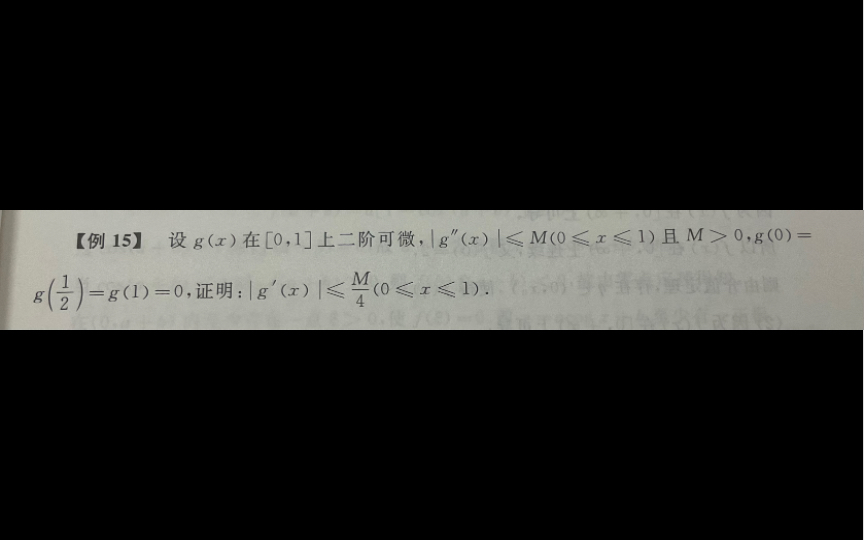 【例 15】 设 g(x)在[0,1]上二阶可微,|g″(x)|≤M(0≤x≤1)且 M>0,g(0)=
g(1/2)=g(1)=0,证明:|g′(x)|≤M/4(0≤x≤1).